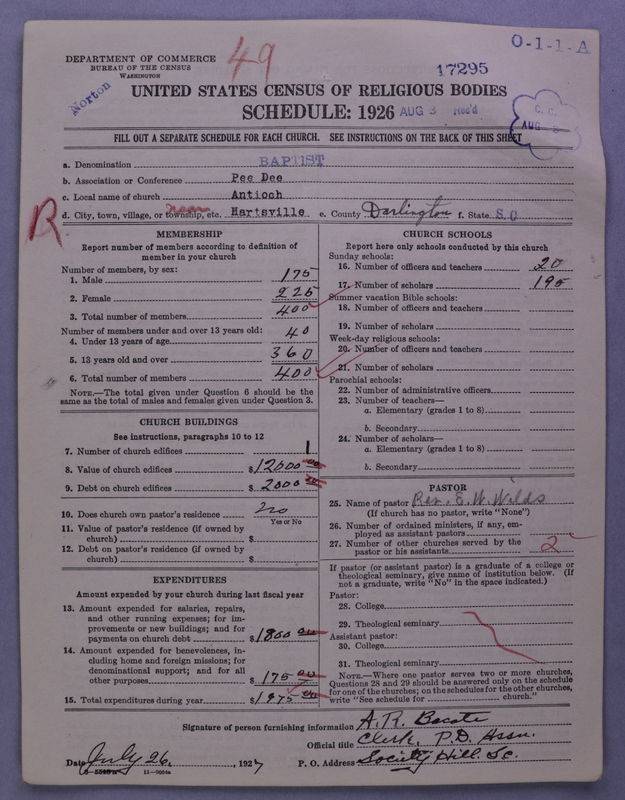 DEPARTMENT OF COMMERCE
BUREAU OF THE CENSUS
WASHINGTON
49
17295
O-1-1-A
Norton
UNITED STATES CENSUS OF RELIGIOUS BODIES
SCHEDULE: 1926 AUG 3 Rec'd
C. C.
AUG
FILL OUT A SEPARATE SCHEDULE FOR EACH CHURCH. SEE INSTRUCTIONS ON THE BACK OF THIS SHEET
a. Denomination BAPTIST
b. Association or Conference Pee Dee
c. Local name of church Antioch
R
d. City, town, village, or township, etc. Hartsville e. County Darlington f. State S.C
MEMBERSHIP
Report number of members according to definition of
member in your church
Number of members, by sex:
1. Male 175
2. Female 225
3. Total number of members 400
Number of members under and over 13 years old:
4. Under 13 years of age 40
5. 13 years old and over 360
6. Total number of members 400
NOTE.—The total given under Question 6 should be
same as the total of males and females given under Question 3.
CHURCH BUILDINGS
See instructions, paragraphs 10 to 12
7. Number of church edifices 1
8. Value of church edifices $12000 00
9. Debt on church edifices $2000 00
10. Does church own pastor's residence no
Yes or No
11. Value of pastor's residence (if owned by
church) $
12. Debt on pastor's residence (if owned by
church) $
EXPENDITURES
Amount expended by your church during last fiscal year
13. Amount expended for salaries, repairs,
and other running expenses; for im-
provements or new buildings; and for
payments on church debt $1800 00
14. Amount expended for benevolences, in-
cluding home and foreign missions; for
denominational support; and for all
other purposes $175 00
15. Total expenditures during year $1975 00
CHURCH SCHOOLS
Report here only schools conducted by this church
Sunday schools:
16. Number of officers and teachers 20
17. Number of scholars 195
Summer vacation Bible schools:
18. Number of officers and teachers
19. Number of scholars
Week-day religious schools:
20. Number of officers and teachers
21. Number of scholars
Parochial schools:
22. Number of administrative officers
23. Number of teachers—
a. Elementary (grades 1 to 8)
b. Secondary
24. Number of scholars—
a. Elementary (grades 1 to 8)
b. Secondary
PASTOR
25. Name of pastor Rev. E. W. Wilds
(If church has no pastor, write "None")
26. Number of ordained ministers, if any, em-
ployed as assistant pastors
27. Number of other churches served by the
pastor or his assistants 2
If pastor (or assistant pastor) is a graduate of a college or
theological seminary, give name of institution below. (If
not a graduate, write "No" in the space indicated.)
Pastor:
28. College
29. Theological seminary
Assistant pastor:
30. College
31. Theological seminary
NOTE.—Where one pastor serves two or more churches,
Questions 28 and 29 should be answered only on the schedule
for one of the churches; on the schedules for the other churches,
write "See schedule for church."
Signature of person furnishing information A. R. Bacote
Official title Clerk, P.D. Assn.
Date July 26, 1927 P. O. Address Society Hill. Sc.
11—9054a